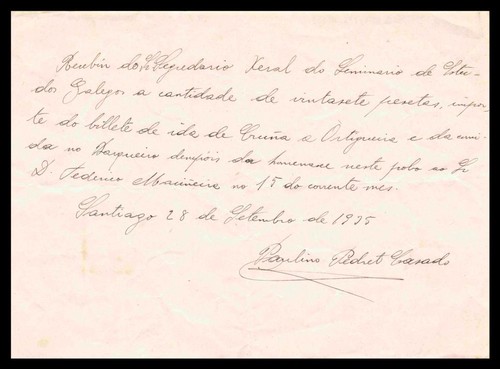 Recibin do Sr. Segredario Xeral do Seminario de Estu-
dos Galegos a cantidade de vintasete pesetas, impor-
te do billete de ida de Cruña a Ortigueira e da comi-
da no Barqueiro dempois da homenaxe neste pobo ao Sr.
D. Federico Maciñeira no 15 do corrente mes.
Santiago 28 de Setembro de 1935
Paulino Pedret Casado